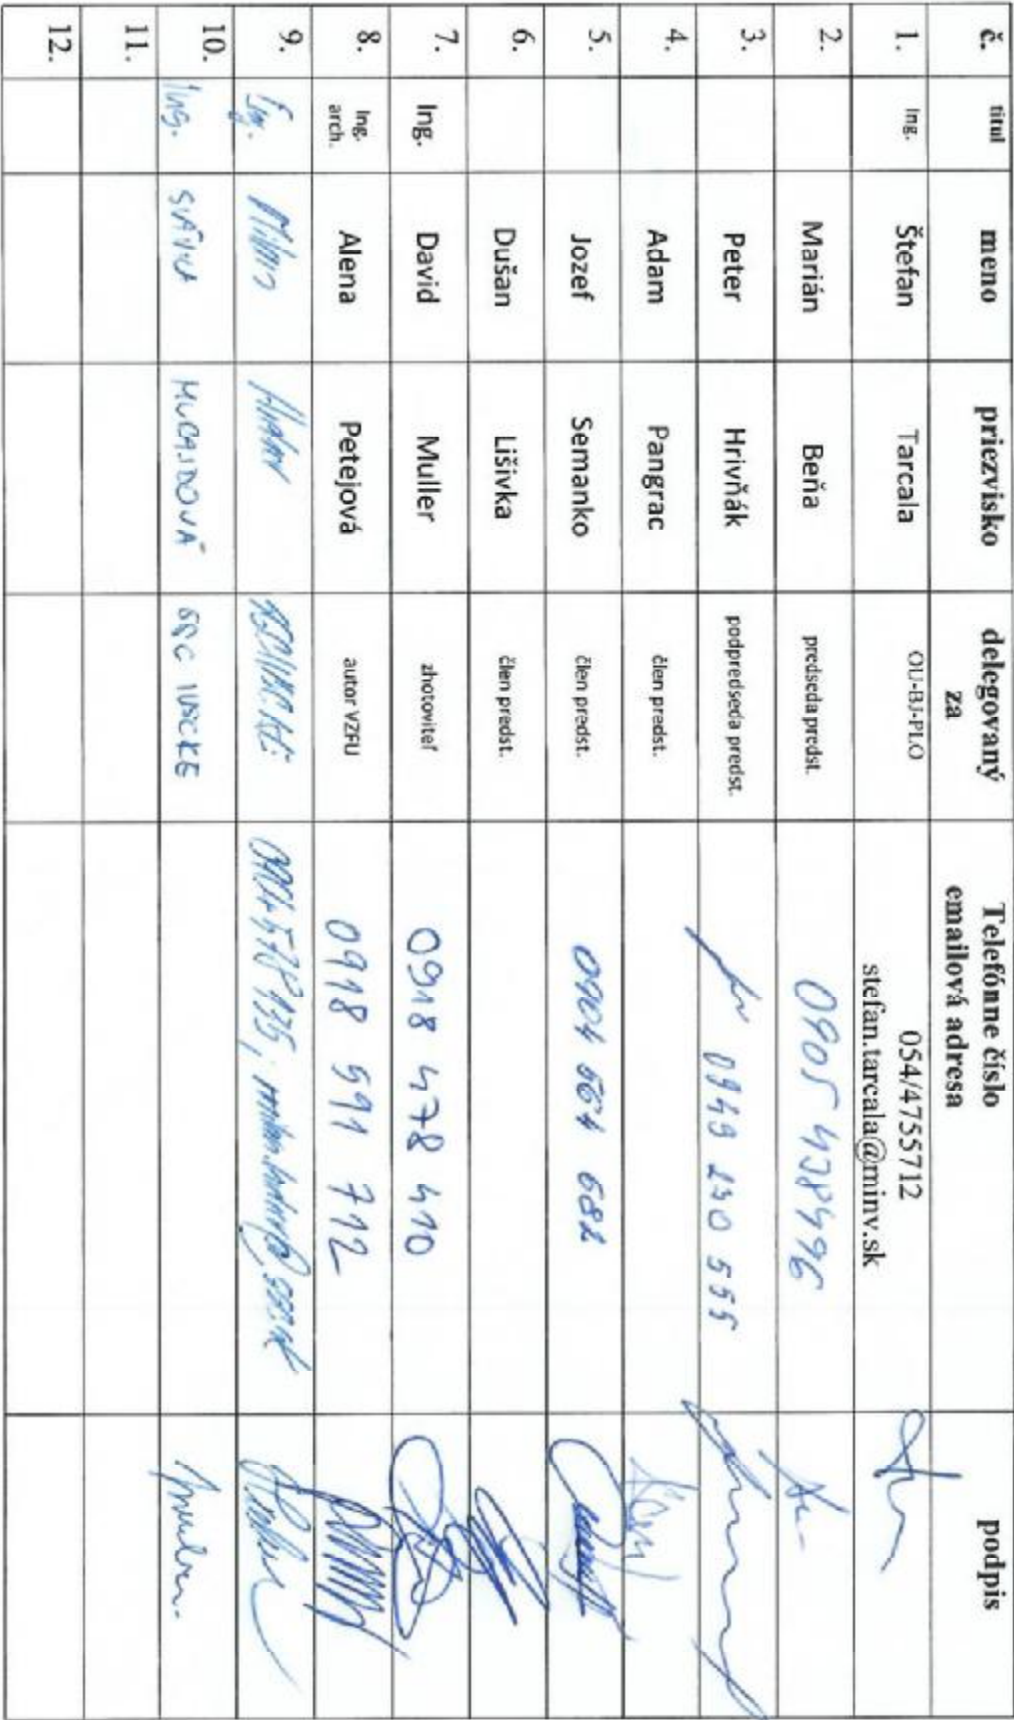 č. titul meno priezvisko delegovaný za Telefónne číslo emailová adresa podpis
1. Ing. Štefan Tarcala OU-BJ-PLO 054/4755712 stefan.tarcala@minv.sk
2. Marián Beňa predseda predst. 0905 438496
3. Peter Hrivňák podpredseda predst. 0949 230 555
4. Adam Pangrac člen predst.
5. Jozef Semanko člen predst. 0904 564 682
6. Dušan Lišivka člen predst.
7. Ing. David Muller zhotoviteľ 0918 478 410
8. Ing. arch. Alena Petejová autor VZFU 0918 591 712
9. Ing. Milan
10. Ing.
11.
12.